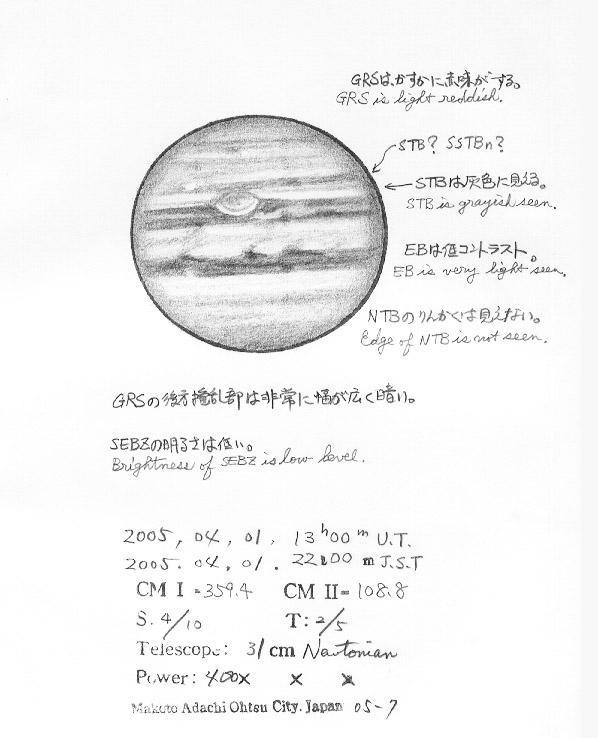 GRSは、かすかに赤味がする。
GRS is light reddish.
STB? SSTBn?
STBは灰色に見える。
STB is grayish seen.
EBは低コントラスト。
EB is very light seen.
NTBのりんかくは見えない。
Edge of NTB is not seen.
GRSの後方攪乱部は非常に幅が広く暗い。
SEBZの明るさは低い。
Brightness of SEBZ is low level.
2005, 04, 01, 13h00m U.T.
2005. 04, 01. 22h00m J.S.T
CM I = 359.4 CM II= 108.8
S. 4/10 T: 2/5
Telescope: 31 cm Newtonian
Power: 400x x x
Makoto Adachi Ohtsu City. Japan 05-7